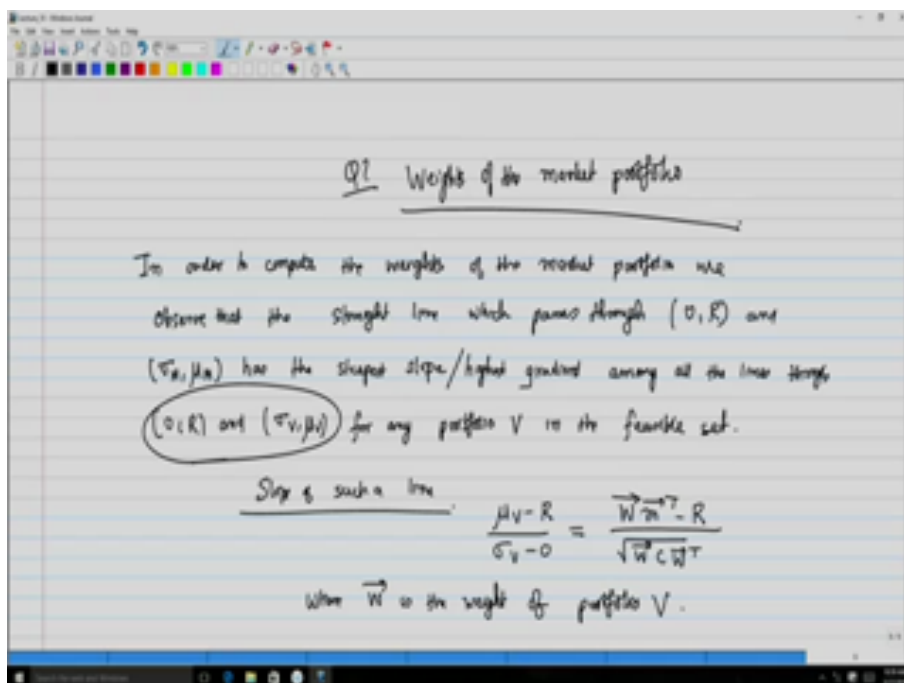 Q? Weights of the market portfolio
In order to compute the weights of the market portfolio we
observe that the straight line which passes through (0, R) and
(σM, μM) has the steepest slope/highest gradient among all the lines through
(0, R) and (σV, μV) for any portfolio V in the feasible set.
Slope of such a line
μV - R / σV - 0 = W⃗ m⃗ᵀ - R / √W⃗ C W⃗ᵀ
where W⃗ is the weight of portfolio V.